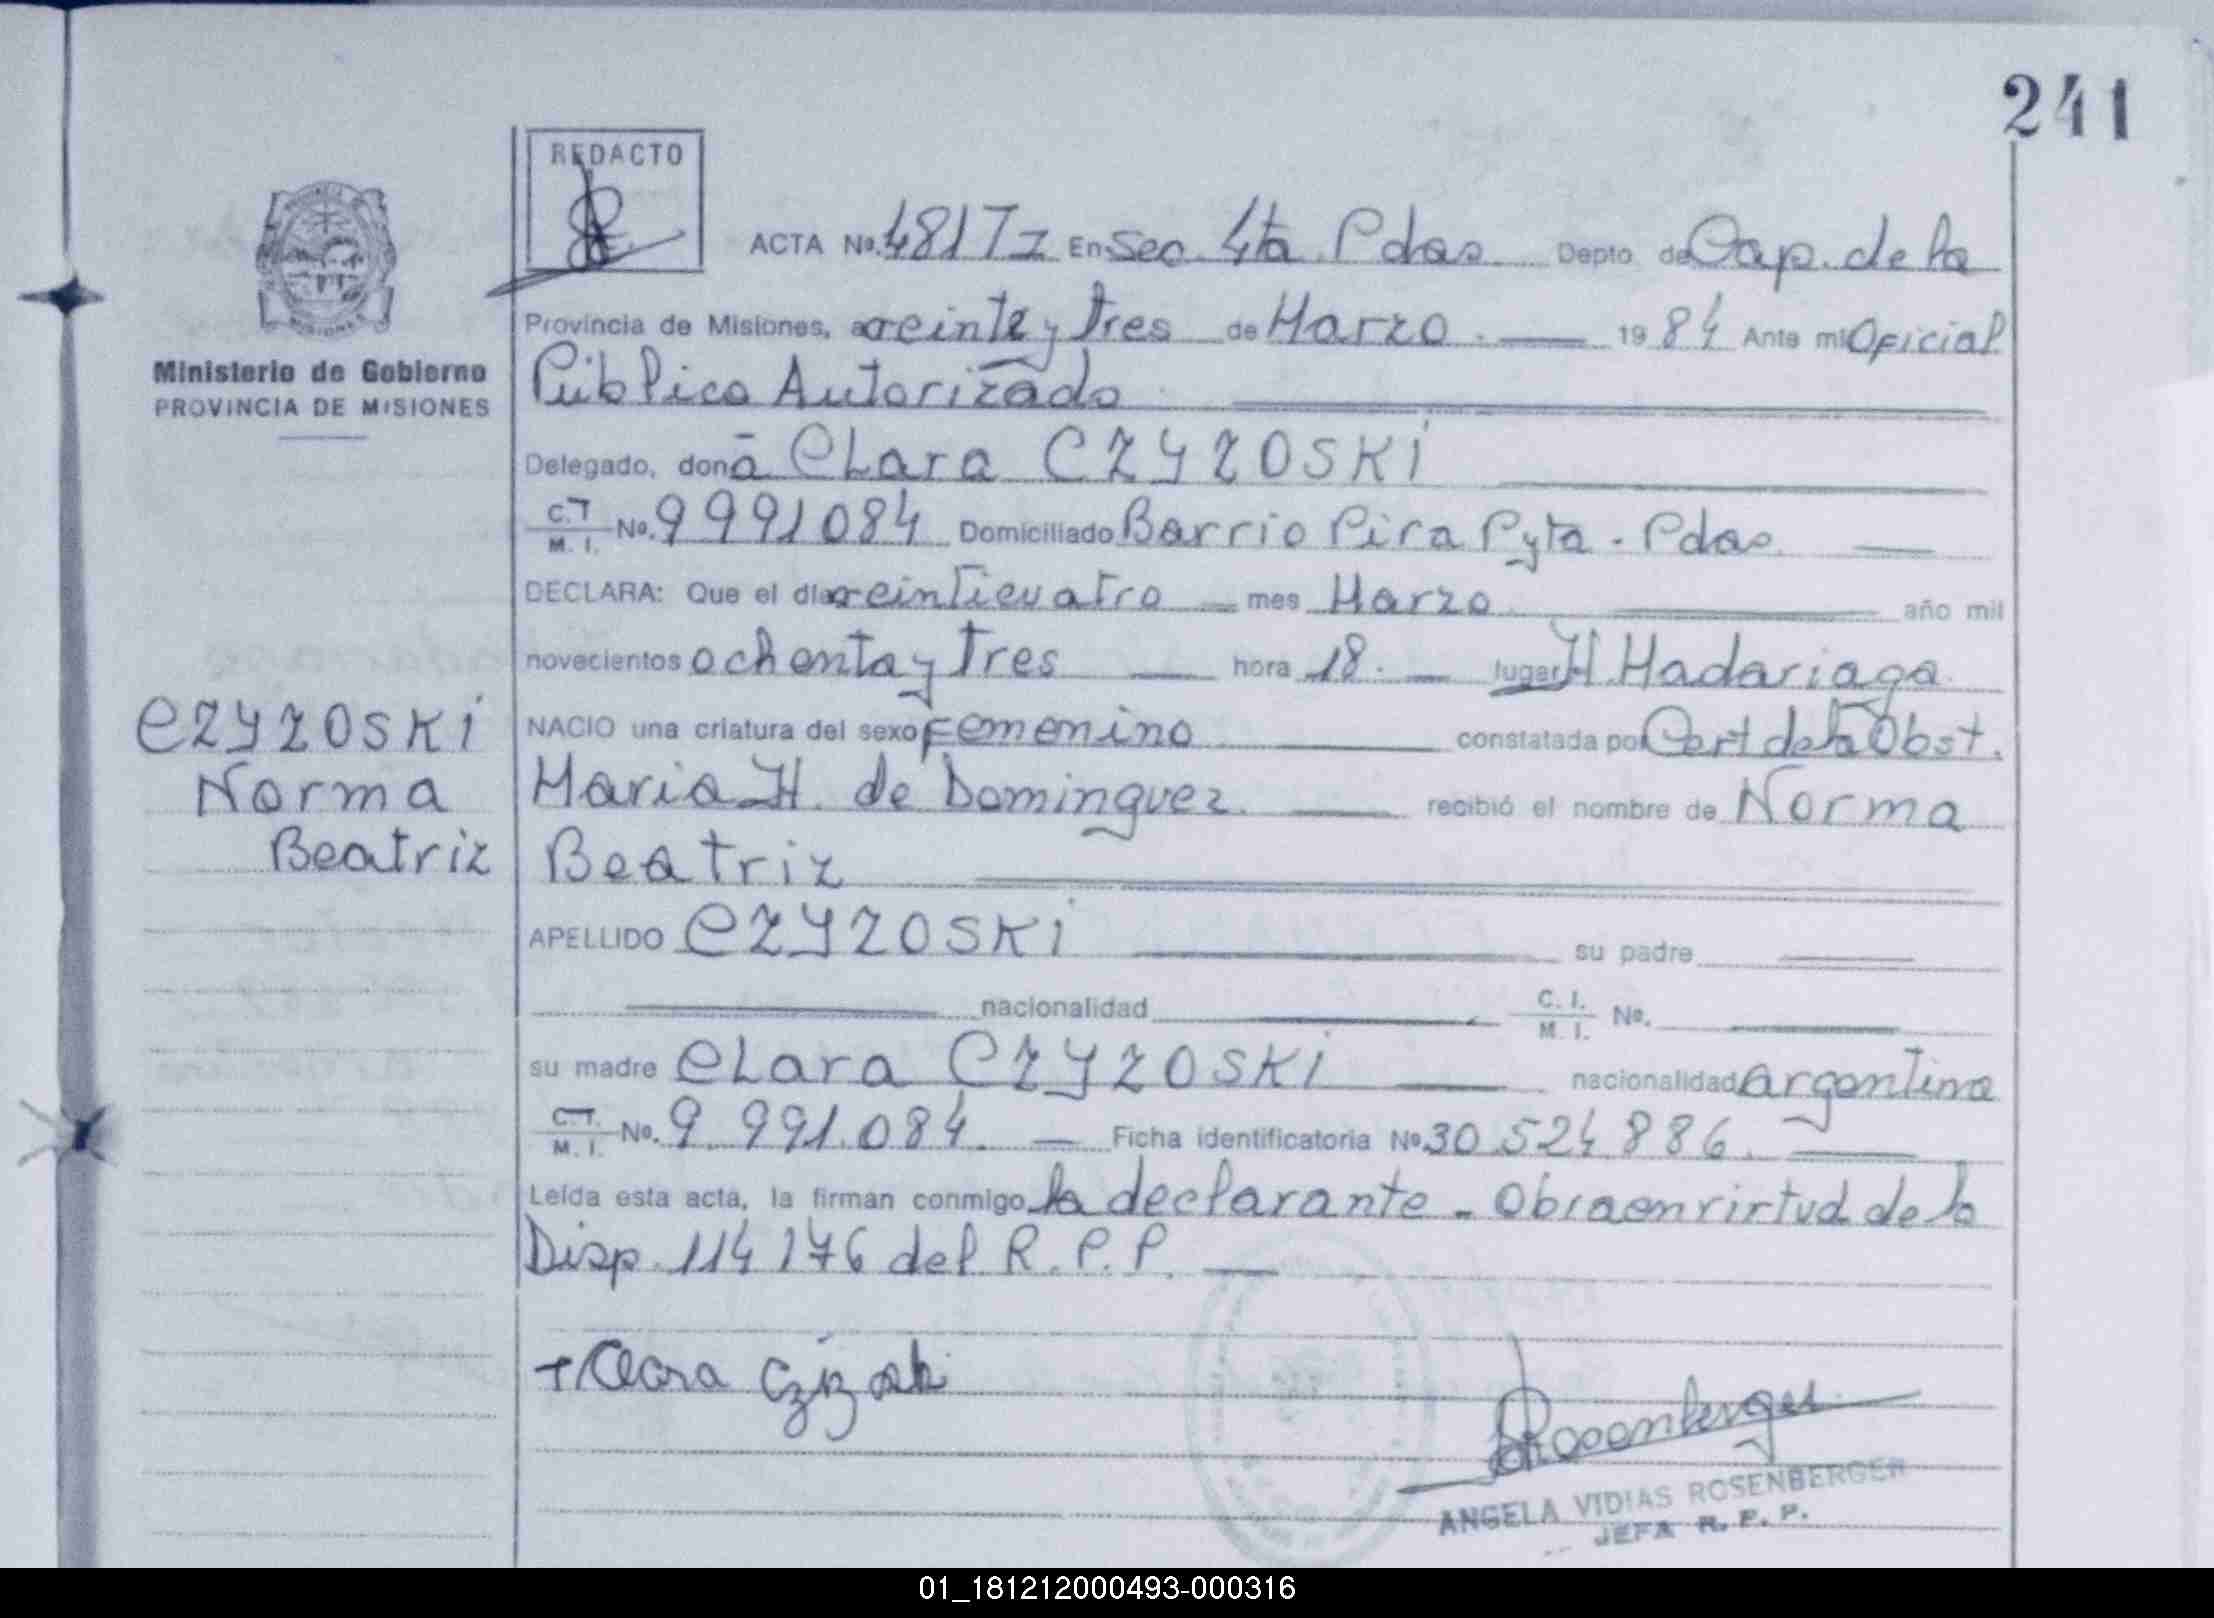 241
REDACTO
ACTA No. 481 T I En Sec. 4ta Pdas. Depto de Cap. de la
Provincia de Misiones, a veinte y tres de Marzo. 1984 Ante mi Oficial
Ministerio de Gobierno
PROVINCIA DE MISIONES
Público Autorizado
Delegado, don a Clara CZYZOSKI
C.I. M. I. No. 9991084 Domiciliado Barrio Pira Pyta - Pdas.
DECLARA: Que el día veinticuatro mes Marzo año mil
novecientos ochenta y tres hora 18. lugar H. Madariaga.
CZYZOSKI
Norma
Beatriz
NACIO una criatura del sexo Femenino constatada por Cert de la Obst.
Maria H. de Dominguez. recibió el nombre de Norma
Beatriz
APELLIDO CZYZOSKI su padre
nacionalidad C. I. M. I. No.
su madre Clara CZYZOSKI nacionalidad argentina
C.I. M. I. No. 9.991.084. Ficha identificatoria No 30.524.886.
Leída esta acta, la firman conmigo la declarante - Obra en virtud de la
Disp. 114/76 del R.P.P.
Clara
Rosenberger
ANGELA VIDIAS ROSENBERGER
JEFA R. P. P.
01_181212000493-000316